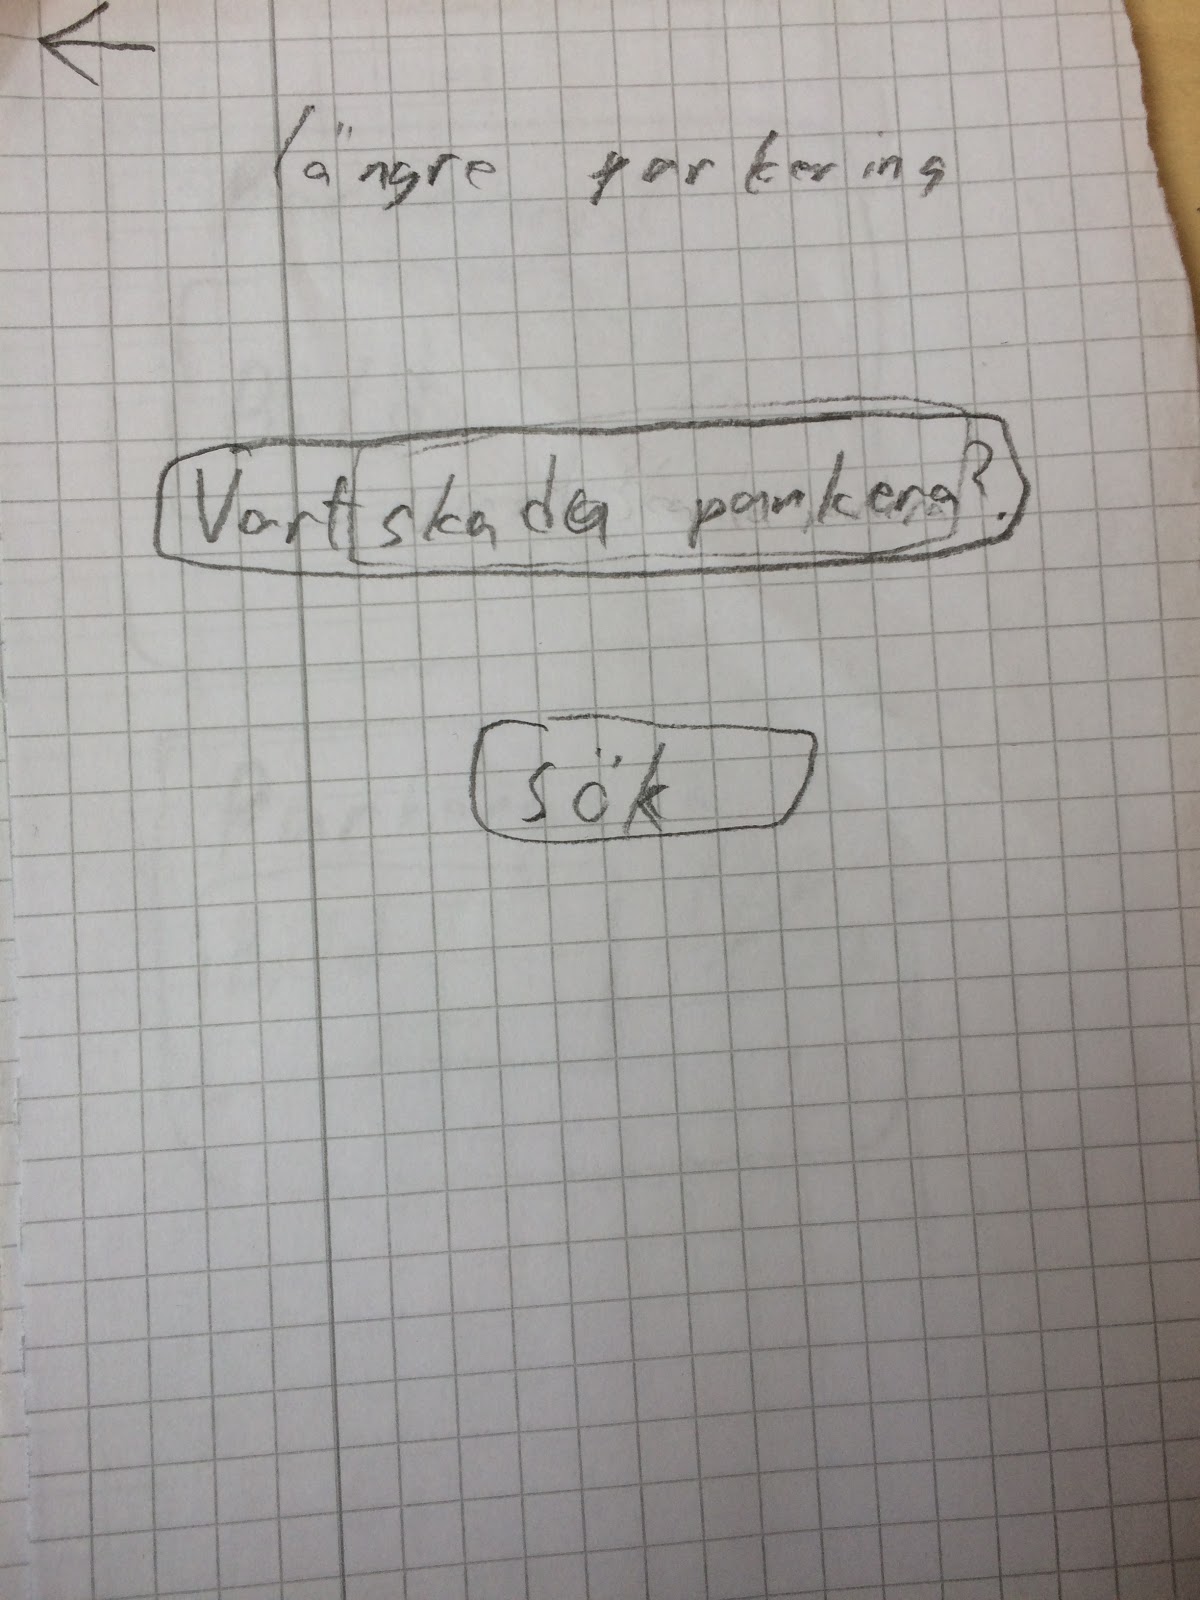 längre parkering
Vart ska du parkera?
sök